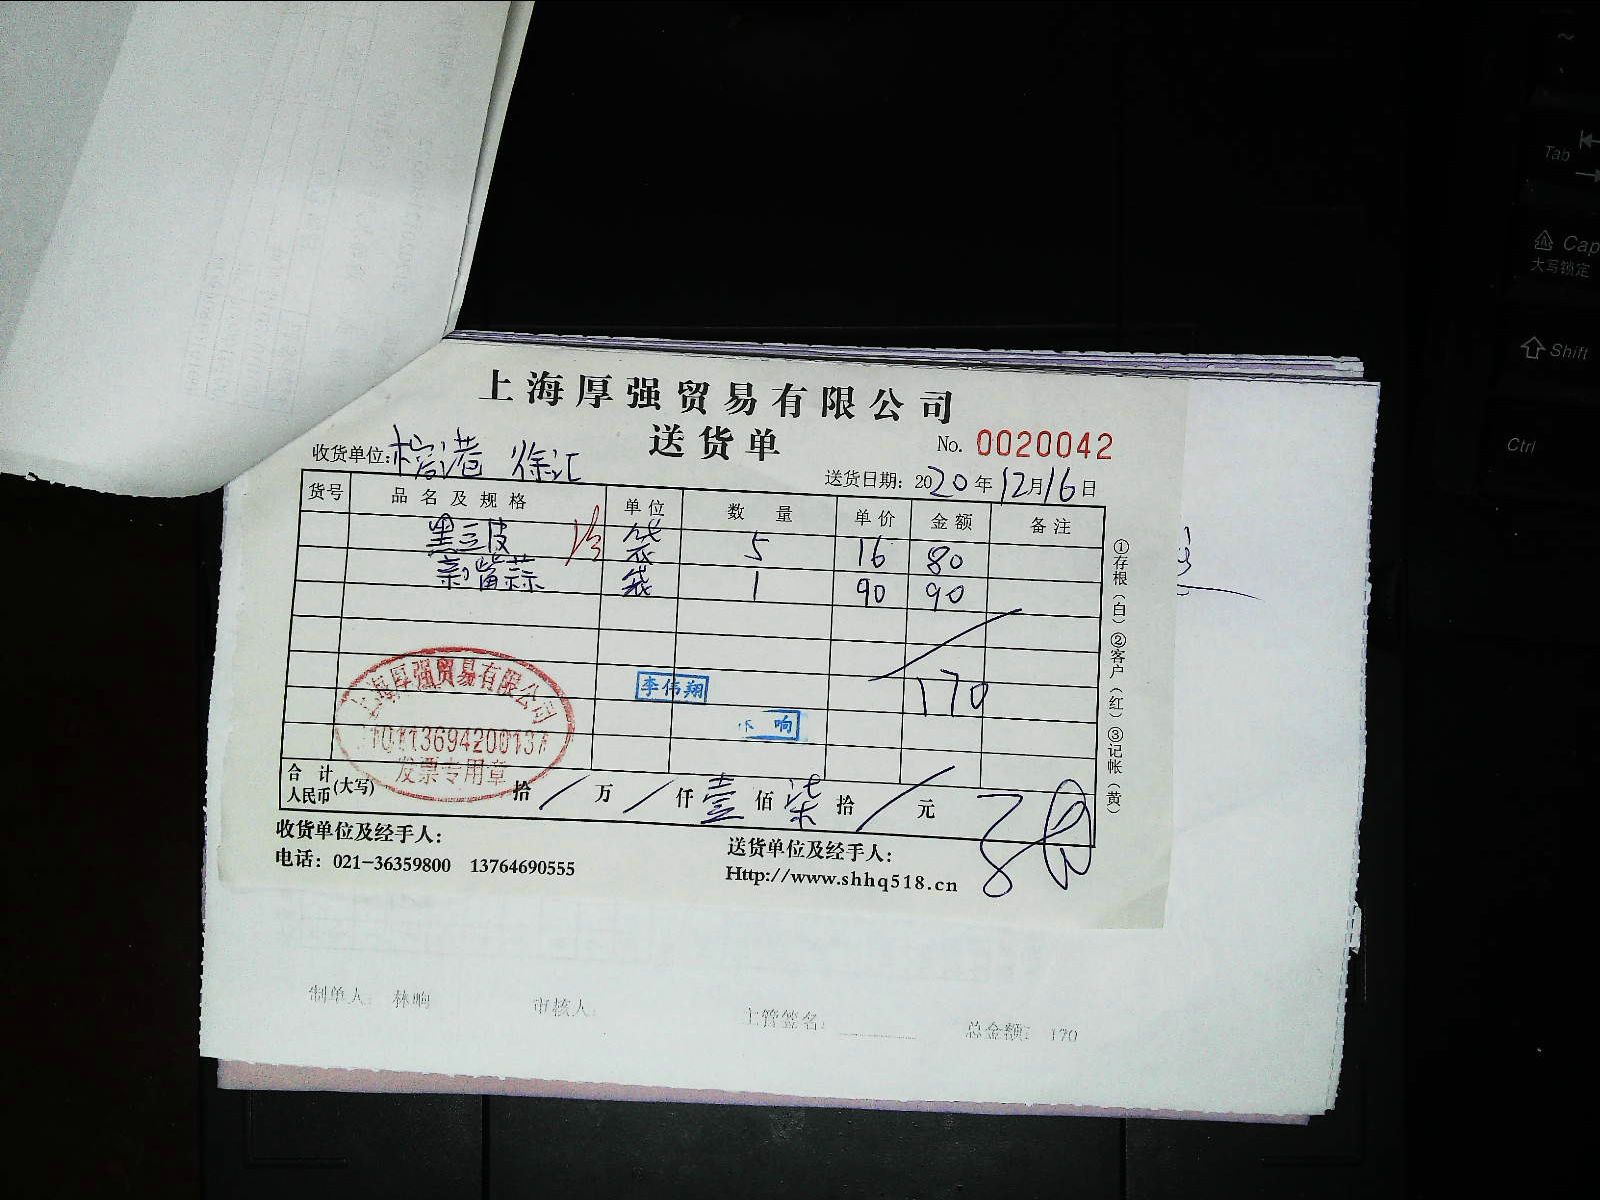 上海厚强贸易有限公司
送货单
No. 0020042
收货单位: 榕港 徐汇
送货日期: 2020年12月16日
货号 品名及规格 单位 数量 单价 金额 备注
黑豆皮 袋 5 16 80
蒜 袋 1 90 90
170
上海厚强贸易有限公司
发票专用章
李伟翔
响
合计人民币(大写) 拾 / 万 / 仟 壹 佰 柒 拾 / 元
①存根(白)②客户(红)③记帐(黄)
收货单位及经手人:
送货单位及经手人:
电话: 021-36359800 13764690555
Http://www.shhq518.cn
制单人: 林响 审核人: 主管签名: 总金额: 170
Tab
Cap
大写锁定
Shift
Ctrl